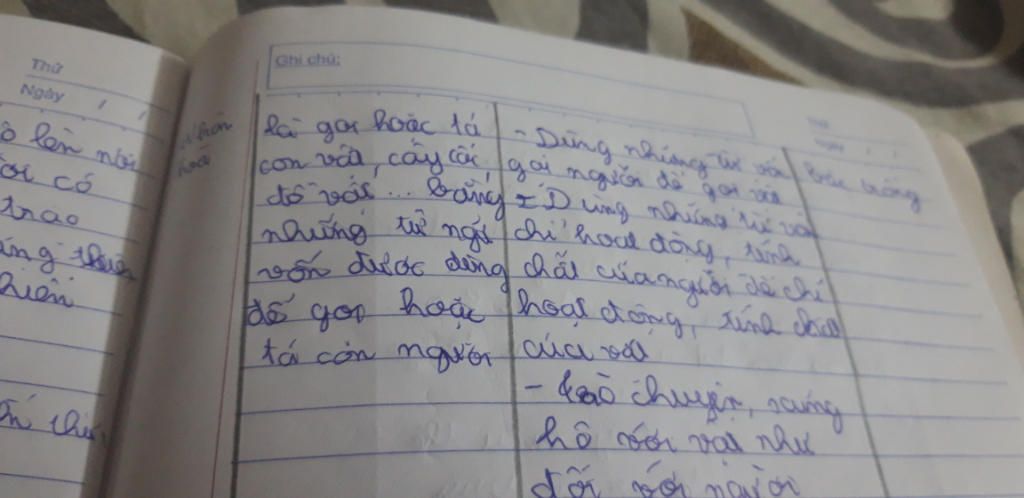 Thứ
Ngày / /
ô lên
có
trao
hiện
Ghi chú:
Nhân
hoá
là gọi hoặc tả
con vật, cây cối
đồ vật... bằng
những từ ngữ
vốn được dùng
để gọi hoặc
tả con người
- Dùng những từ vốn
gọi người để gọi vật
- Dùng những từ vốn
chỉ hoạt động, tính
chất của người để chỉ
hoạt động, tính chất
của vật
- trò chuyện, xưng
hô với vật như
đối với người
Thứ
Ngày / /